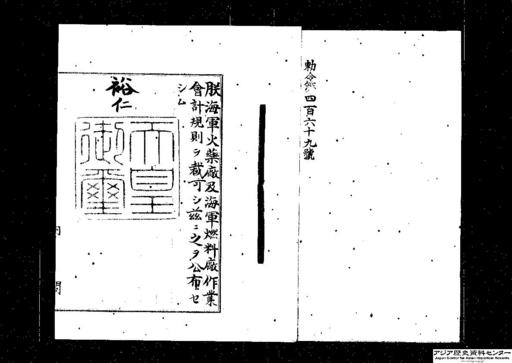 勅令第四百六十九號
朕海軍火藥廠及海軍燃料廠作業
會計規則ヲ裁可シ茲ニ之ヲ公布セ
シム
裕仁
天皇
御璽
内
閣
アジア歴史資料センター
Japan Center for Asian Historical Records